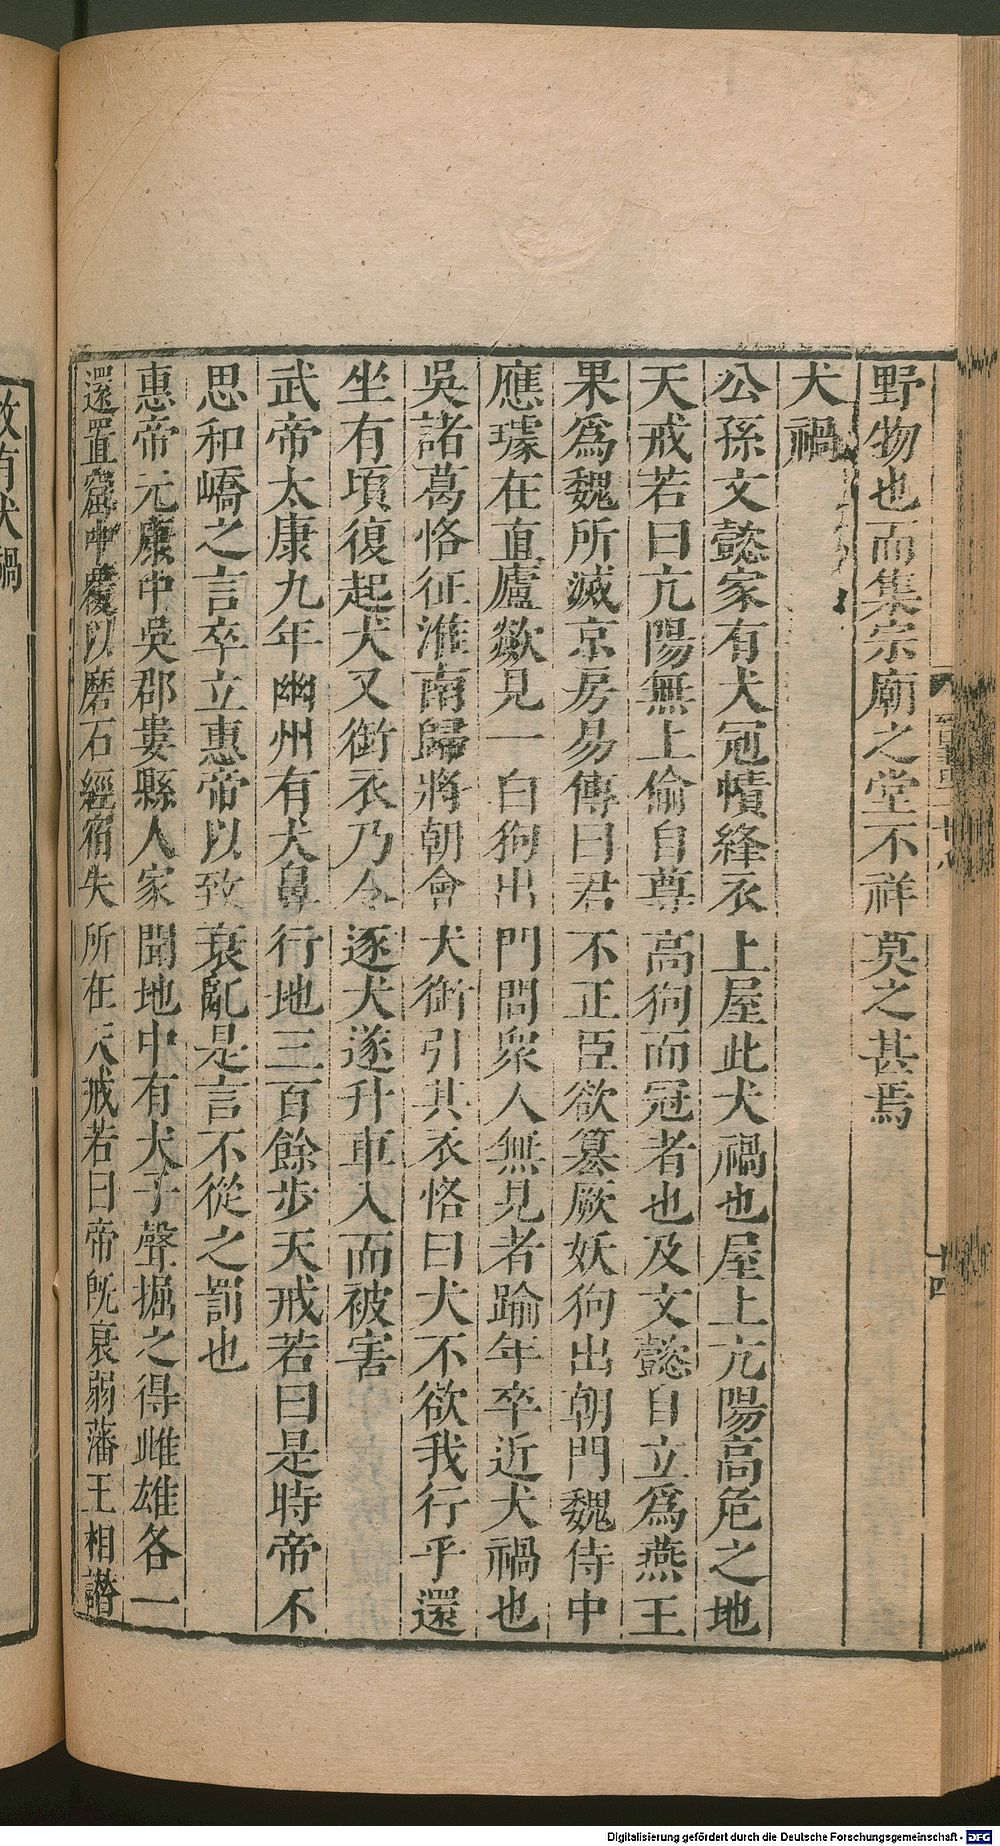 野物也而集宗廟之堂不祥莫之甚焉
犬禍
公孫文懿家有犬冠幘絳衣上屋此犬禍也屋上亢陽高危之地
天戒若曰亢陽無上偷自尊高狗而冠者也及文懿自立爲燕王
果爲魏所滅京房易傳曰君不正臣欲篡厥妖狗出朝門魏侍中
應璩在直廬歘見一白狗出門問衆人無見者踰年卒近犬禍也
吳諸葛恪征淮南歸將朝會犬銜引其衣恪曰犬不欲我行乎還
坐有頃復起犬又銜衣乃令逐犬遂升車入而被害
武帝太康九年幽州有犬鼻行地三百餘步天戒若曰是時帝不
思和嶠之言卒立惠帝以致衰亂是言不從之罰也
惠帝元康中吳郡婁縣人家聞地中有犬子聲掘之得雌雄各一
還置窟中覆以磨石經宿失所在天戒若曰帝旣衰弱藩王相譖
故有犬禍
十四
Digitalisierung gefördert durch die Deutsche Forschungsgemeinschaft - DFG